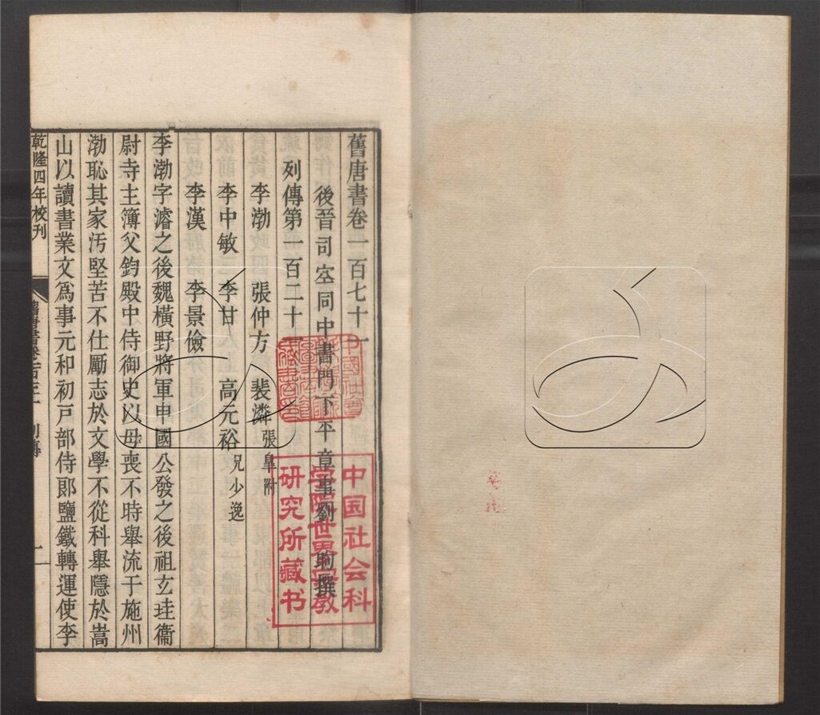 舊唐書卷一百七十一
後晉司空同中書門下平章事劉昫撰
列傳第一百二十一
李渤 張仲方 裴潾 張皐附
李中敏 李甘 高元裕 兄少逸
李漢 李景儉
李渤字濬之後魏橫野將軍申國公發之後祖玄珪衞
尉寺主簿父鈞殿中侍御史以母喪不時舉流于施州
渤恥其家汚堅苦不仕勵志於文學不從科舉隱於嵩
山以讀書業文爲事元和初戶部侍郎鹽鐵轉運使李
乾隆四年校刊
列傳
一
中国社会科
学院世界宗教
研究所藏书